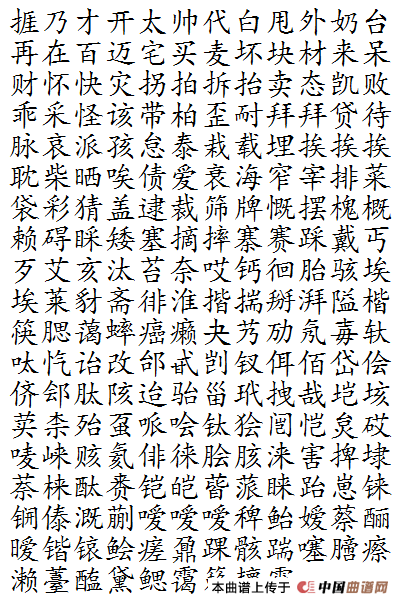 捱乃才开太帅代白甩外奶台
再在百迈宅买麦坏块材来呆
财怀快灾拐拍拆抬卖态凯败
乖采怪该带柏歪耐拜拜贷待
脉哀派孩怠泰栽载埋挨挨挨
耽柴晒唉债爱衰海窄宰排菜
袋彩猜盖逮裁筛牌慨摆槐概
赖碍睬矮塞摘摔寨赛踩戴丐
歹艾亥汰苔奈哎钙徊胎骇埃
埃莱豺斋徘淮揩揣掰湃隘楷
筷腮蔼蟀癌癞夬艿劢氖毐轪
呔忾诒改邰甙剀钗佴佰岱侩
侪郐肽陔迨骀甾玳拽哉垲垓
荬柰殆虿哌哙钛狯闿恺炱砹
唛崃赅氦俳徕脍胲涞害捭埭
萘梾酞赉铠皑菑蒎睐跆崽铼
锎傣溉蒯嗳嗳嗳稗鲐嫒蔡酾
暧锴镱鲙瘥鼐踝骸踹噻膪瘵
濑薹醢黛鳃霭
本曲谱上传于 中国曲谱网